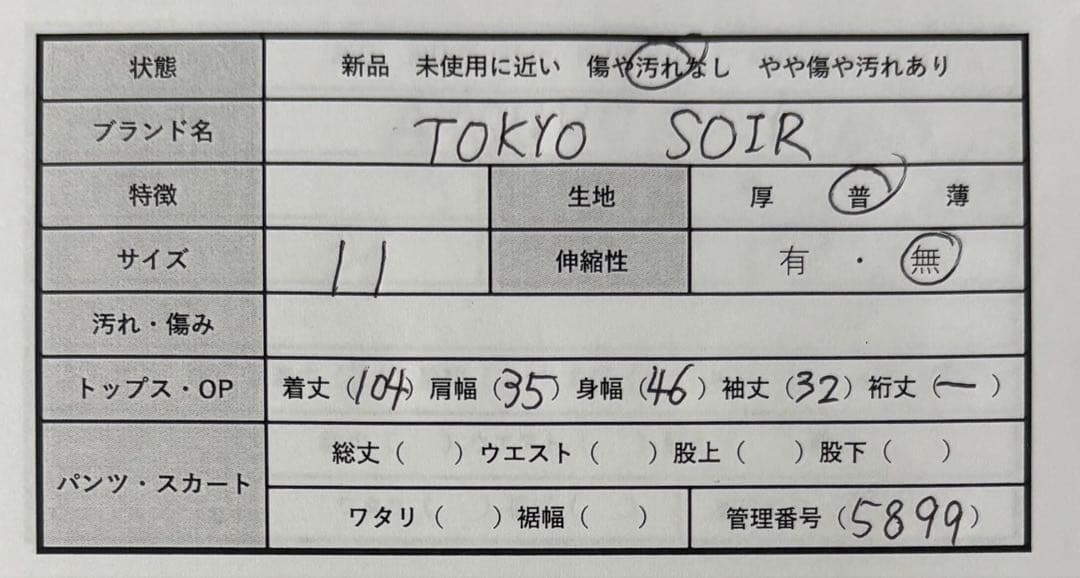 状態 新品 未使用に近い 傷や汚れなし やや傷や汚れあり
ブランド名 TOKYO SOIR
特徴 生地 厚 普 薄
サイズ 11 伸縮性 有 ・ 無
汚れ・傷み
トップス・OP 着丈（104）肩幅（35）身幅（46）袖丈（32）裄丈（ー）
パンツ・スカート 総丈（ ）ウエスト（ ）股上（ ）股下（ ）
ワタリ（ ）裾幅（ ） 管理番号（5899）